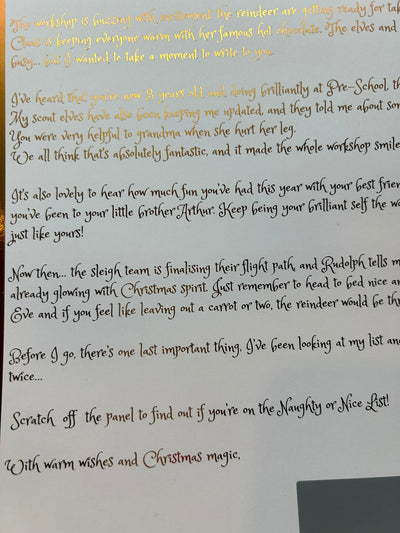 The workshop is buzzing with excitement, the reindeer are getting ready for tak
Claus is keeping everyone warm with her famous hot chocolate. The elves and
busy... but I wanted to take a moment to write to you.
I've heard that you're now 3 years old, and doing brilliantly at Pre-School, th
My scout elves have also been keeping me updated, and they told me about som
You were very helpful to grandma when she hurt her leg.
We all think that's absolutely fantastic, and it made the whole workshop smile
It's also lovely to hear how much fun you've had this year with your best frien
you've been to your little brother Arthur. Keep being your brilliant self the wo
just like yours!
Now then... the sleigh team is finalising their flight path, and Rudolph tells m
already glowing with Christmas spirit. Just remember to head to bed nice an
Eve and if you feel like leaving out a carrot or two, the reindeer would be thr
Before I go, there's one last important thing. I've been looking at my list an
twice...
Scratch off the panel to find out if you're on the Naughty or Nice List!
With warm wishes and Christmas magic,